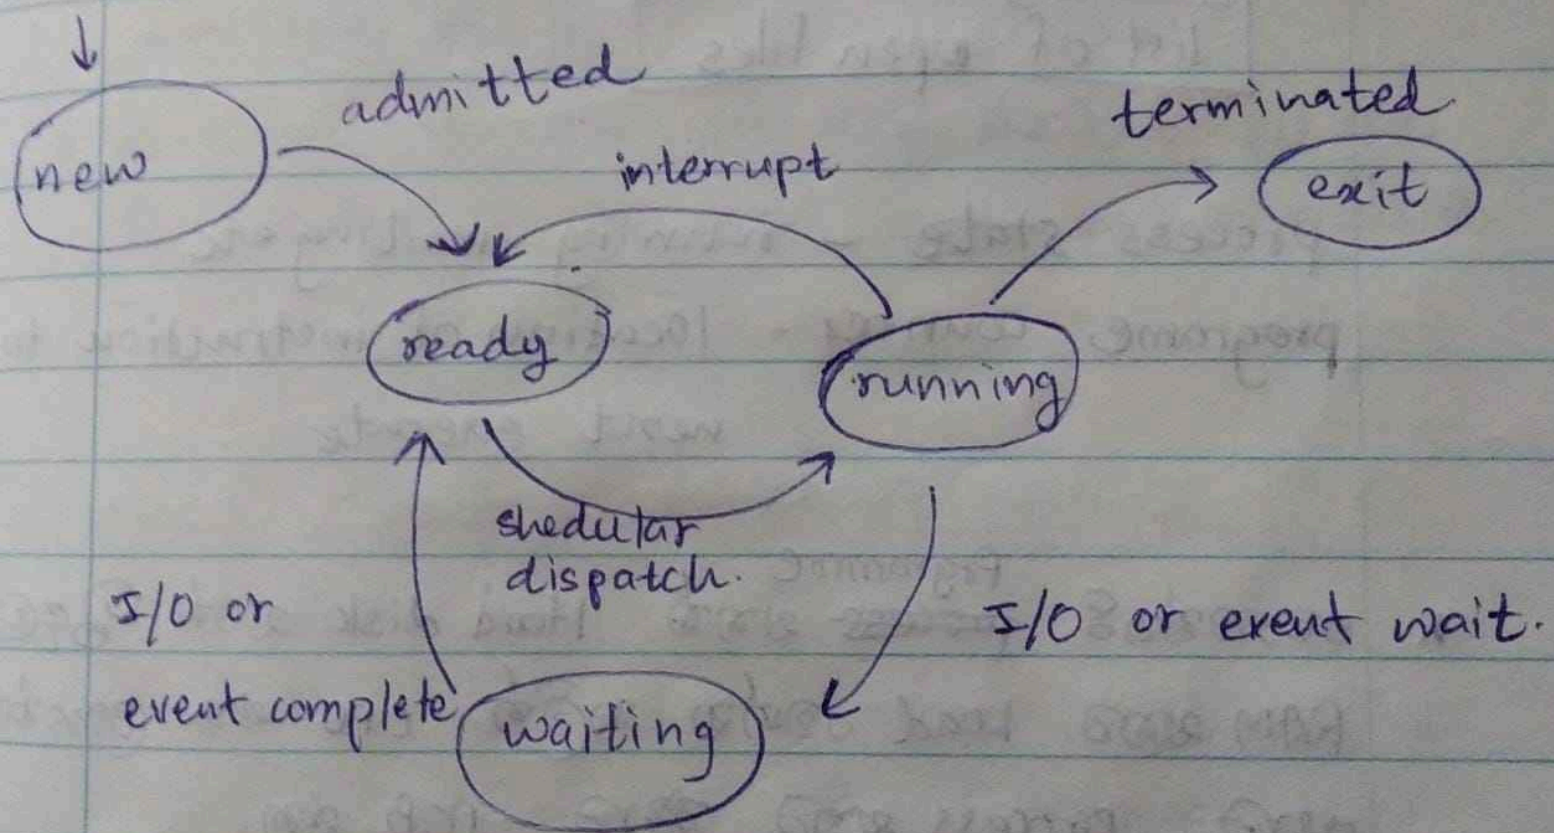 admitted
terminated
interrupt
new
exit
ready
running
shedular
dispatch.
I/O or
event complete
I/O or event wait.
waiting